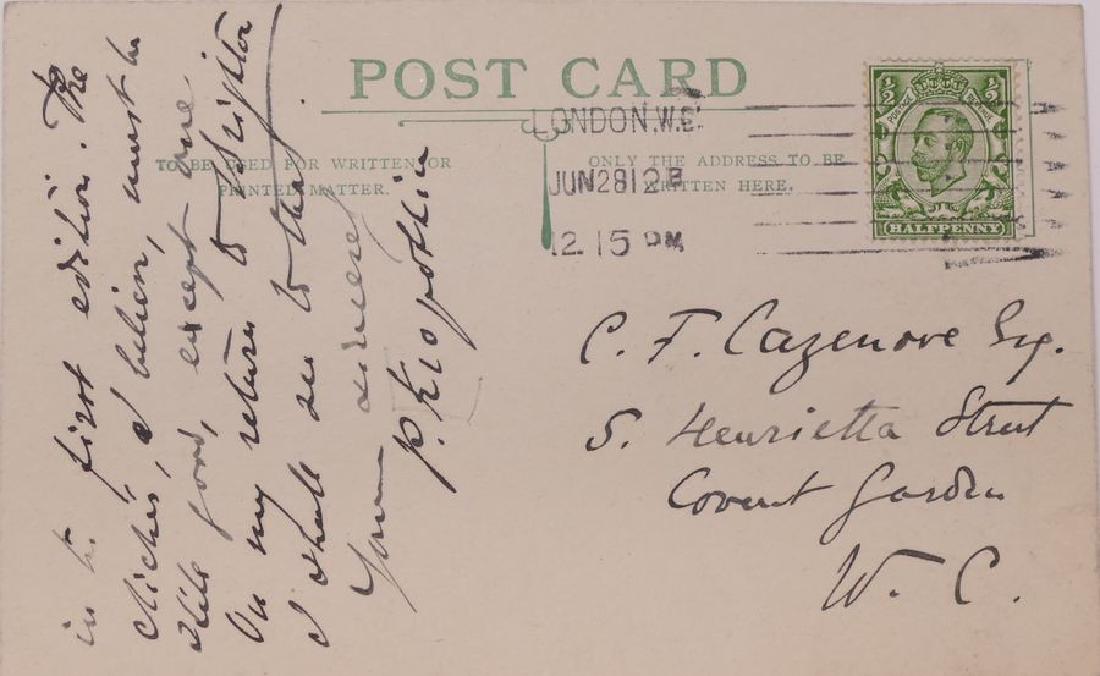 POST CARD
TO BE USED FOR WRITTEN OR
PRINTED MATTER.
ONLY THE ADDRESS TO BE
WRITTEN HERE.
LONDON.W.C.
JUN 28 12
12 15 PM
½ ½
POSTAGE
HALFPENNY
in the first edition. The
clichés, I believe, must be
still good, except one
On my return to Brighton
I shall see to that.
Yours sincerely
P. Kropotkin
C. F. Cazenove Esq.
5. Henrietta Street
Covent Garden
W. C.